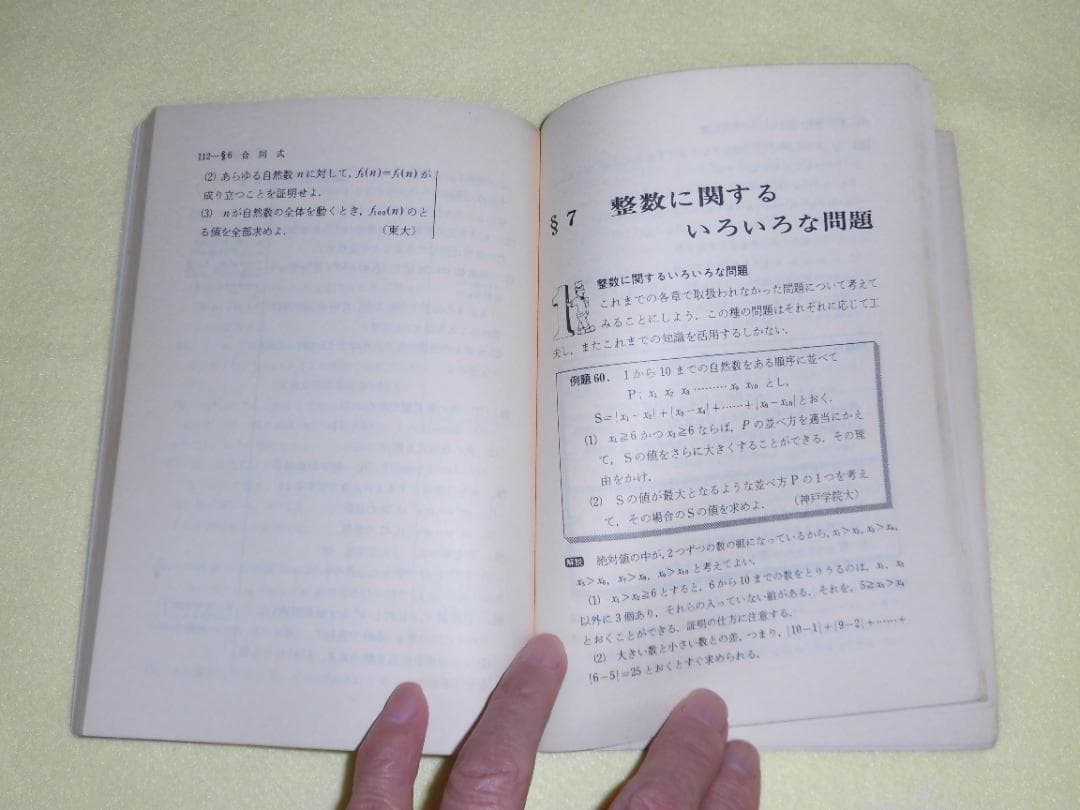 112—§6 合同式
(2) あらゆる自然数 n に対して, f₅(n)=f₁(n) が
成り立つことを証明せよ.
(3) n が自然数の全体を動くとき, f₁₀₀(n) のと
る値を全部求めよ. (東大)
§7 整数に関する
いろいろな問題
1 整数に関するいろいろな問題
これまでの各章で取扱われなかった問題について考えて
みることにしよう. この種の問題はそれぞれに応じて工
夫し, またこれまでの知識を活用するしかない.
例題 60. 1 から 10 までの自然数をある順序に並べて
P : x₁ x₂ x₃ ……… x₉ x₁₀ とし,
S=|x₁−x₂|+|x₃−x₄|+……+|x₉−x₁₀| とおく.
(1) x₁≧6 かつ x₂≧6 ならば, P の並べ方を適当にかえ
て, S の値をさらに大きくすることができる. その理
由をかけ.
(2) S の値が最大となるような並べ方 P の 1 つを考え
て, その場合の S の値を求めよ. (神戸学院大)
解説 絶対値の中が, 2 つずつの数の組になっているから, x₁>x₂, x₃>x₄,
x₅>x₆, x₇>x₈, x₉>x₁₀ と考えてよい.
(1) x₁>x₂≧6 とすると, 6 から 10 までの数をとりうるのは, x₁, x₂
以外に 3 個あり, それらの入っていない組がある. それを, 5≧x₃>x₄
とおくことができる. 証明の仕方に注意する.
(2) 大きい数と小さい数との差, つまり, |10−1|+|9−2|+……+
|6−5|=25 とおくとすぐ求められる.